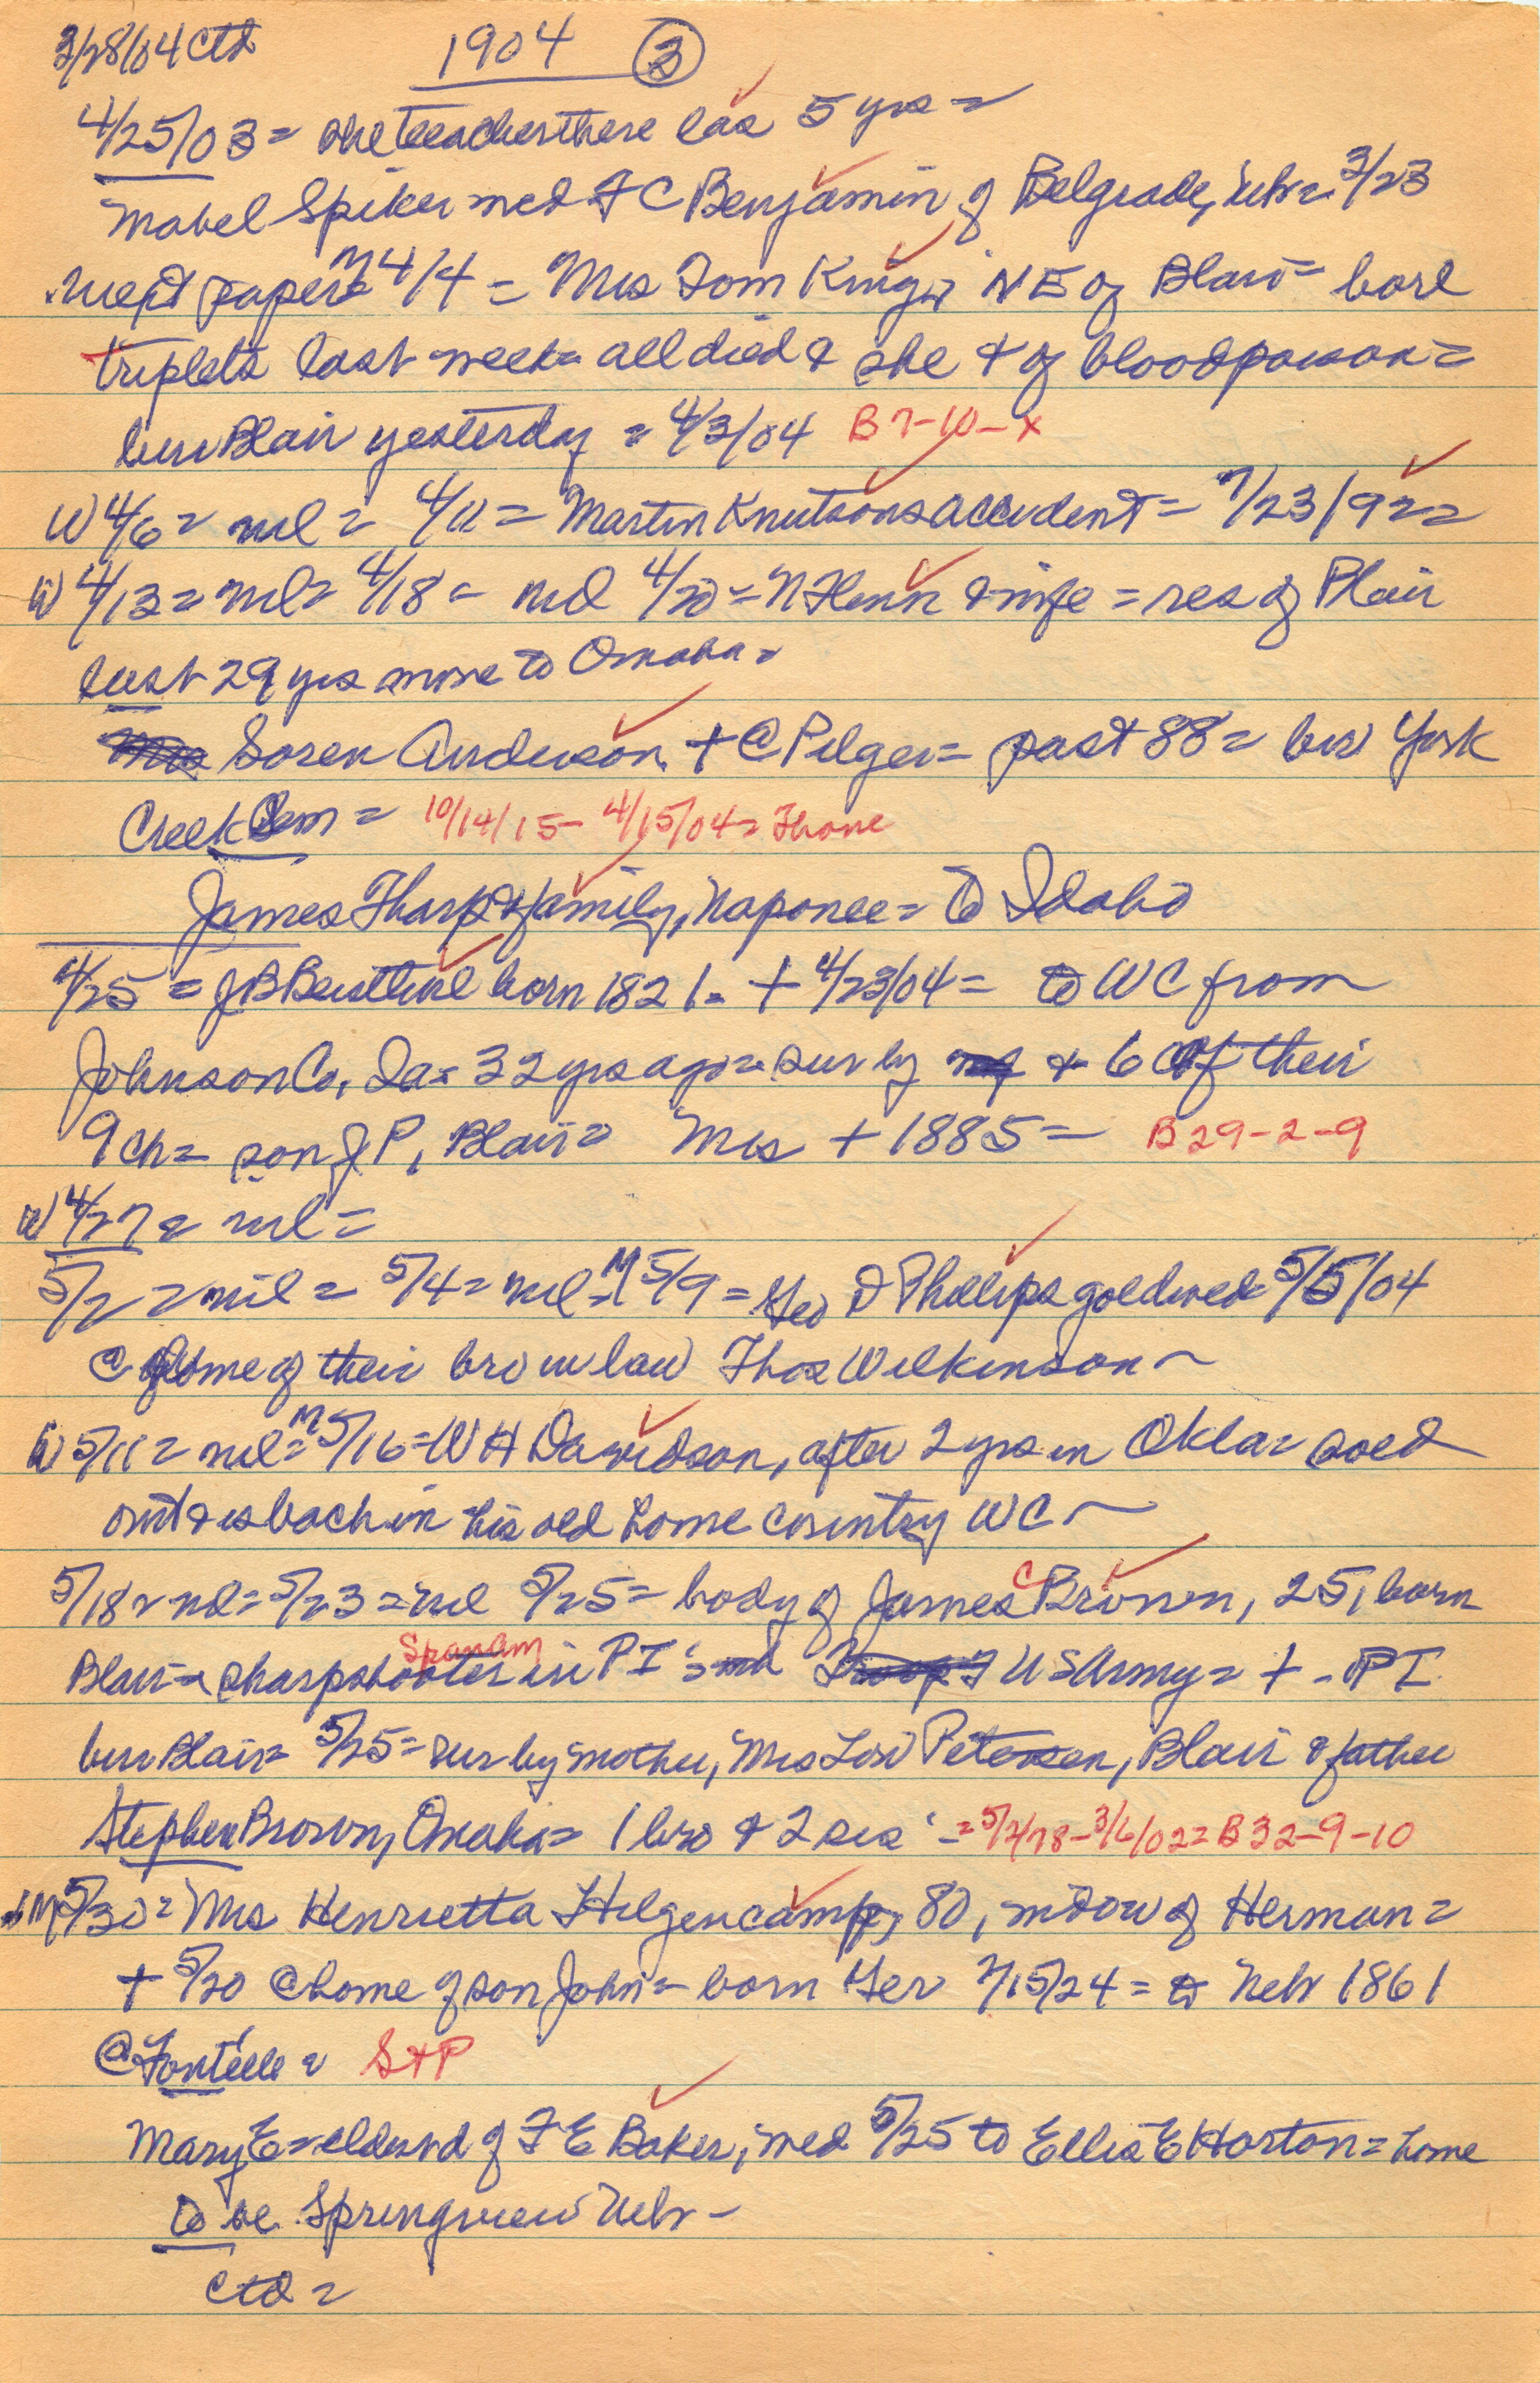 3/28/04 ctd 1904 3
4/25/03 = she teacher there las 5 yrs =
Mabel Spiker wed F C Benjamin of Belgrade, Nebr = 3/23
next paper = M 4/4 = Mrs Tom King, NE of Blair = bore
triplets last week = all died & she + of bloodpoison =
bur Blair yesterday = 4/3/04 B 7-10-x
W 4/6 = nil = 4/11 = Martin Knutsons accident = 7/23/92 =
W 4/13 = nil = 4/18 = nil 4/20 = & wife = res of Blair
last 29 yrs move to Omaha =
Soren Anderson + @ Pilger = past 88 = bur York
Creek Cem = 10/14/15 - 4/15/04 = Thone
James Tharp & family, Naponee = to Idaho
4/25 = J B born 1821 = + 4/23/04 = to WC from
Johnson Co, Ia = 32 yrs ago = sur by & 6 of their
9 ch = son J P, Blair = Mrs + 1885 = B 29-2-9
W 4/27 = nil =
5/2 = nil = 5/4 = nil = M 5/9 = Geo D Phillips goldwed 5/5/04
@ home of their bro in law Thos Wilkinson ~
W 5/11 = nil = M 5/16 = W H Davidson, after 2 yrs in Okla = sold
out & is back in his old home country WC ~
5/18 = nil = 5/23 = nil 5/25 = body of James C Brown, 25, born
Blair = sharpshooter in PI Spanam US Army = + - PI
bur Blair = 5/25 = sur by mother, Mrs Petersen, Blair & father
Stephen Brown, Omaha = 1 bro & 2 sis = 5/2/78 - 3/6/02 = B 32-9-10
M 5/30 = Mrs Henrietta Hilgencamp, 80, widow of Herman =
+ 5/20 @ home of son John = born Ger 7/15/24 = to Nebr 1861
@ Fontelle = S+P
Mary E = elder d of F E Baker, wed 5/25 to Ellis E Horton = home
to be Springview Nebr -
ctd =